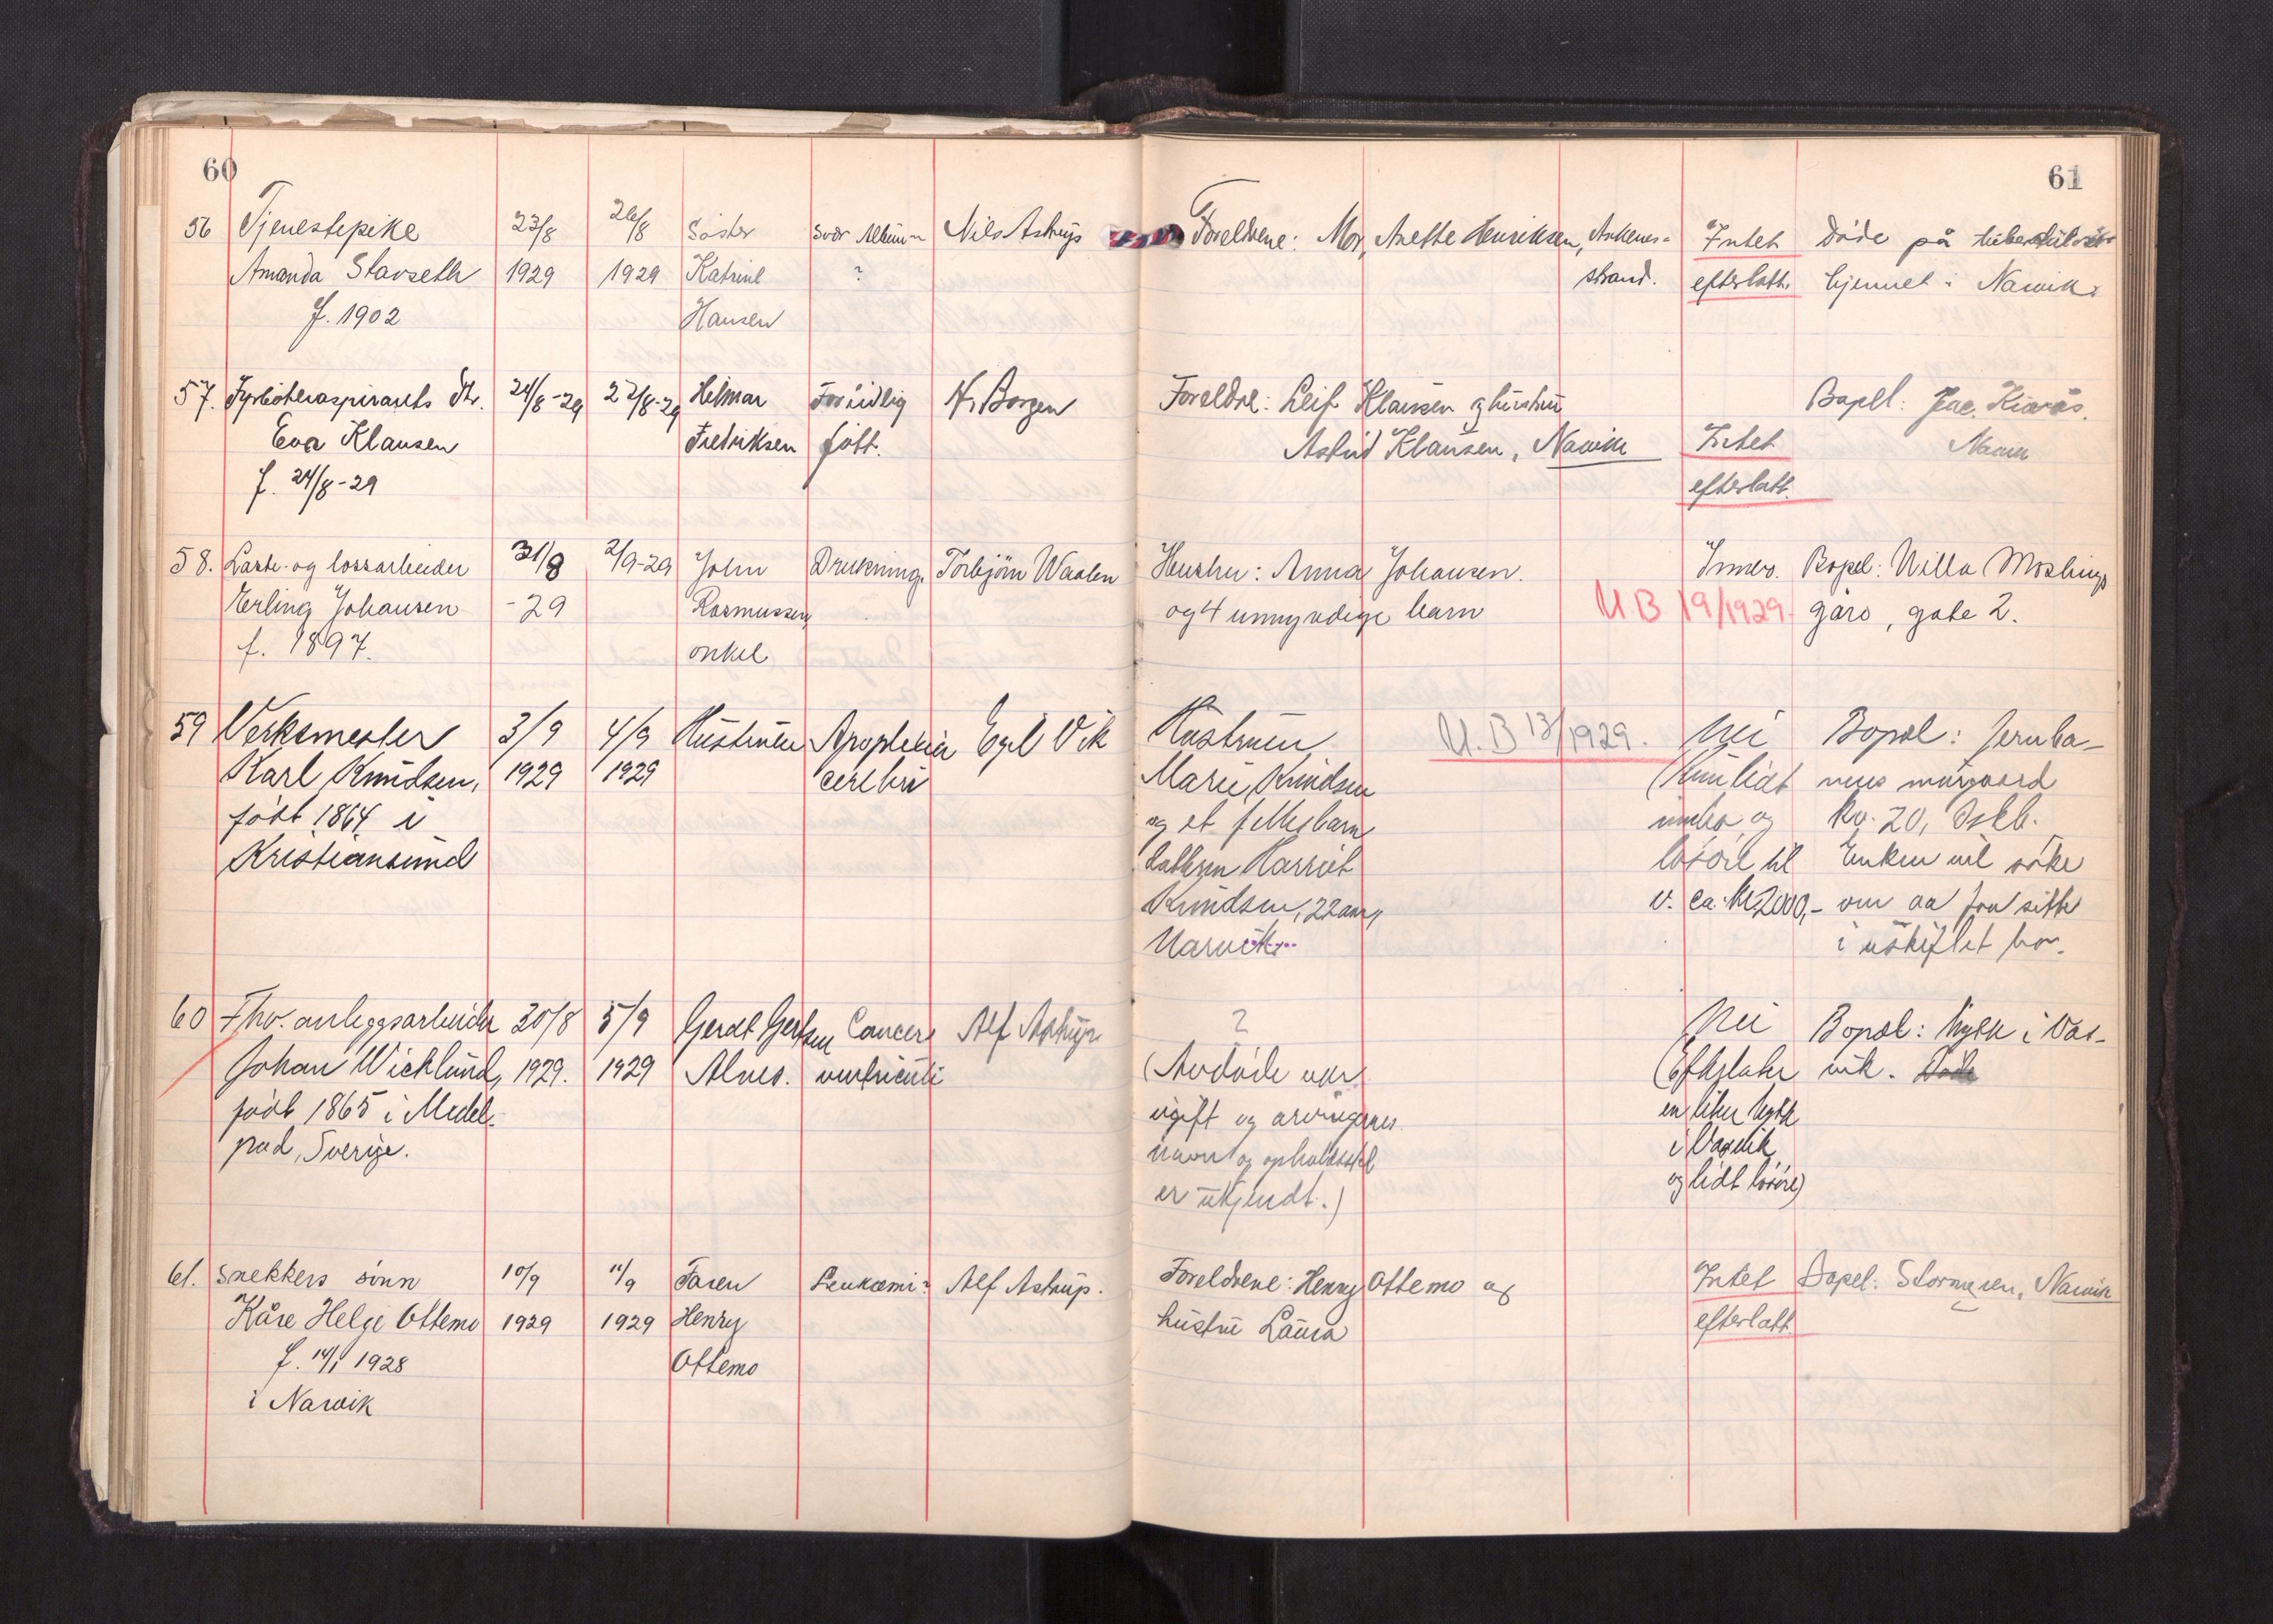 60
61
56 Tjenestepike 23/8 26/8 Søster svær Albumin Nils Astrup Foreldrene: Mor, Anette Henriksen, Ankenes- Intet Døde på tuberkuløse-
Amanda Stavseth 1929 1929 Katrine ? strand. efterlatt. hjemmet i Narvik.
f. 1902 Hansen
57. Fyrbøteraspirants dtr. 24/8-29 27/8-29 Helmar Fortidlig H. Borgen Foreldre: Leif Klausen og hustru Bopel: Jac.
Eva Klausen Fredriksen født. Astrid Klausen, Narvik Intet Narvik
f. 24/8-29 efterlatt.
58. Laste- og lossarbeider 31/8 2/9-29 John Drukning. Torbjørn Waalen Hustru: Anna Johansen. Bopel: Willa Moslings
Erling Johansen -29 Rasmussen og 4 umyndige barn U B 19/1929. gård, gate 2.
f. 1897. onkel
59 Verksmester 3/9 4/9 Hustruen Apopleksia Egil Vik Hustruen U.B 13/1929. Nei Bopæl: Jernba-
Karl Knudsen, 1929 1929 cerebri Marie Knudsen (Kun lidt nens murgaard
født 1864 i og et fellesbarn innbo og kv. 20, Oskb.
Kristiansund datteren Harriet løsøre til Enken vil søke
Knudsen, 22 aar, v. ca. kr. 2000,- om aa faa sitte
Narvik. i uskiftet bo.
60 Fhv. anleggsarbeider 30/8 5/9 Gerdt Gertsen Cancer Alf Astrup ? Nei Bopæl: Hytte i Vas-
Johan Wicklund, 1929. 1929 Alnes. ventriculi (Avdøde var (Efterlater vik.
født 1865 i Medel- ugift og arvingenes en liten hytte
pad, Sverige. navn og opholdssted i Vasvik
er ukjendt.) og lidt løsøre)
61. Snekkers sønn 10/9 11/9 Faren Leukæmi? Alf Astrup. Foreldrene: Henry Ottemo og Intet Bopel: Stormyren, Narvik
Kåre Helge Ottemo 1929 1929 Henry hustru Laura efterlatt.
f. 14/1 1928 Ottemo
i Narvik